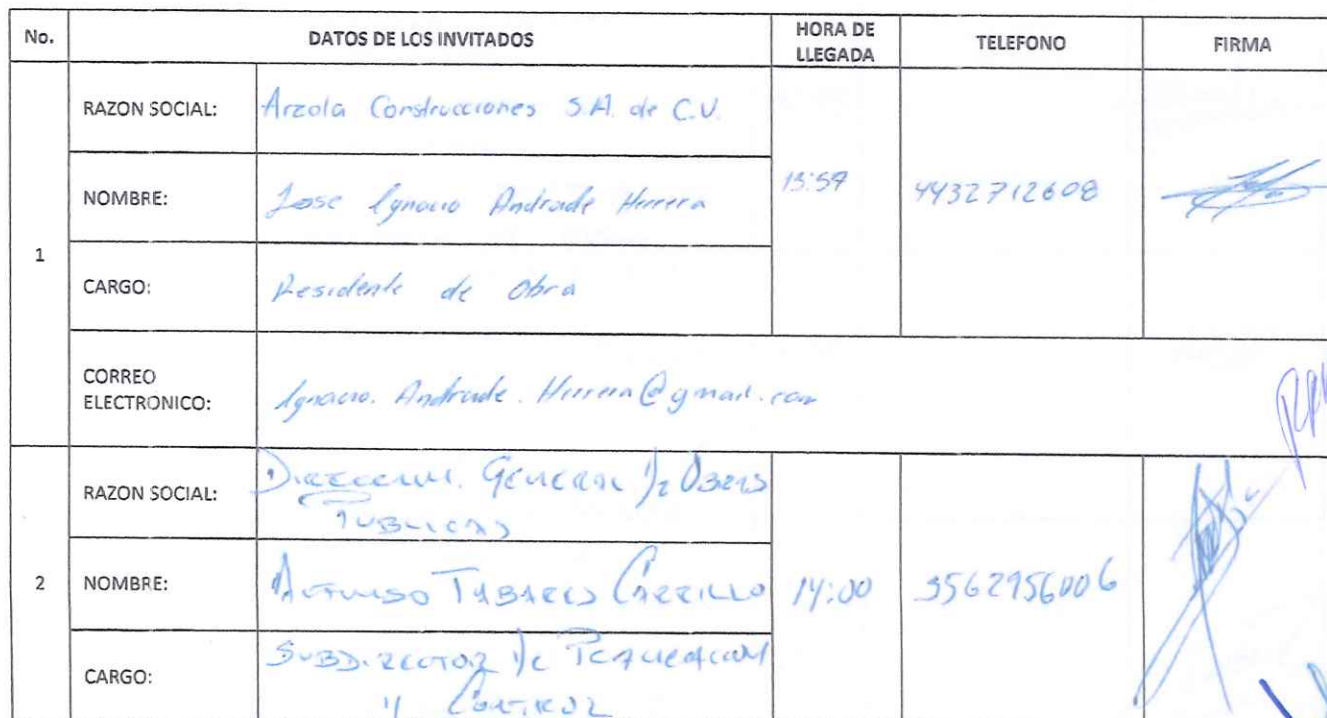 No. DATOS DE LOS INVITADOS HORA DE LLEGADA TELEFONO FIRMA
1
RAZON SOCIAL: Arzola Construcciones S.A. de C.V.
NOMBRE: Jose Ignacio Andrade Herrera 13:59 4432712608
CARGO: Residente de Obra
CORREO ELECTRONICO: Ignacio.Andrade.Herrera@gmail.com
2
RAZON SOCIAL: Direccion General de Obras
Publicas
NOMBRE: Alfonso Tabares Carrillo 14:00
CARGO: Subdirector de Planeacion
y Control